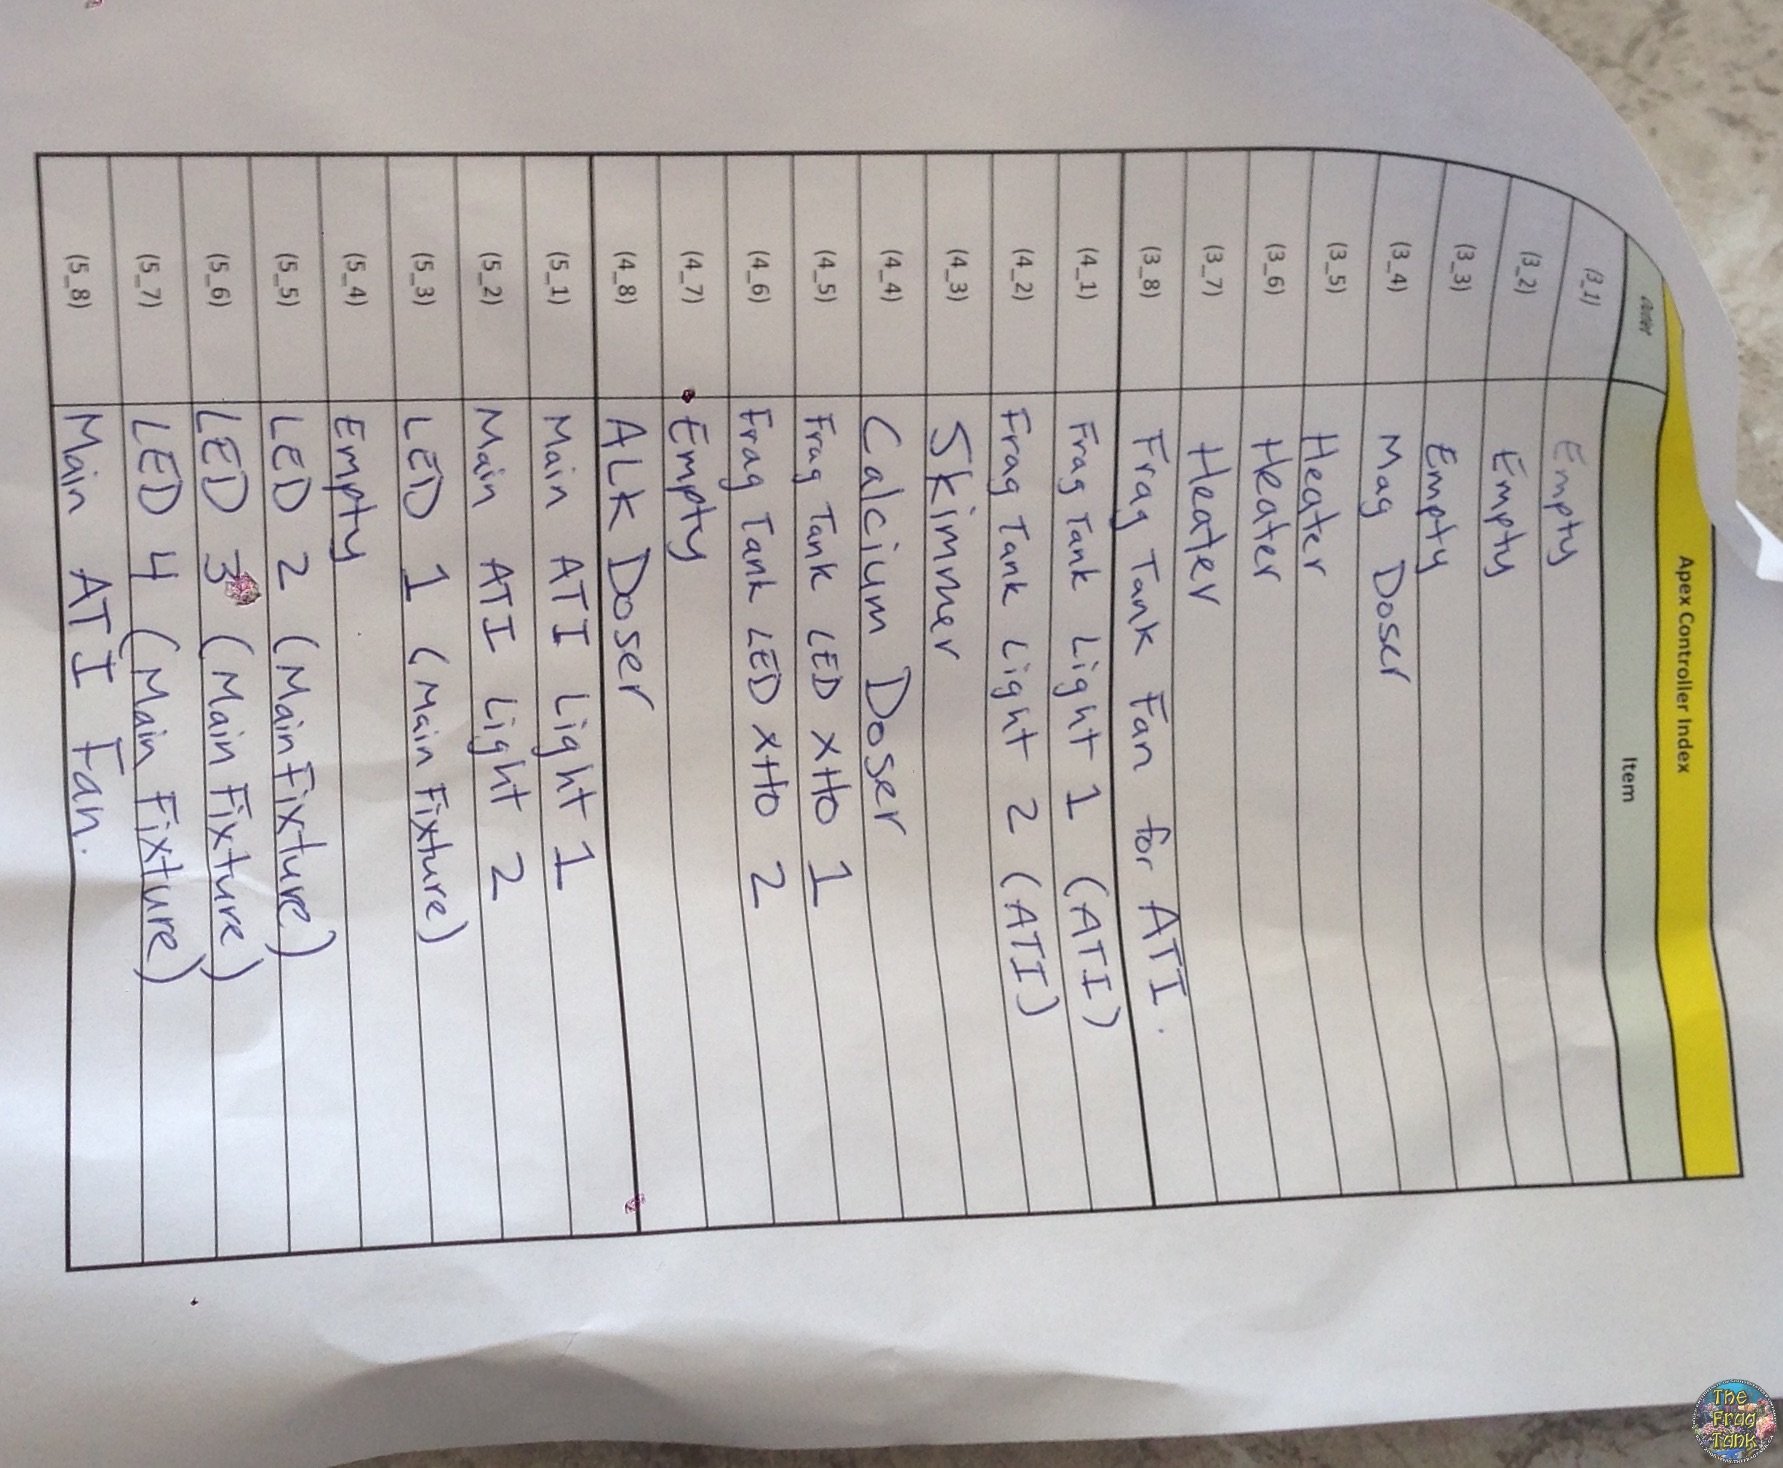 Apex Controller Index
Item
(3_1) Empty
(3_2) Empty
(3_3) Empty
(3_4) Mag Doser
(3_5) Heater
(3_6) Heater
(3_7) Heater
(3_8) Frag Tank Fan for ATI.
(4_1) Frag Tank Light 1 (ATI)
(4_2) Frag Tank Light 2 (ATI)
(4_3) Skimmer
(4_4) Calcium Doser
(4_5) Frag Tank LED XHO 1
(4_6) Frag Tank LED XHO 2
(4_7) Empty
(4_8) ALK Doser
(5_1) Main ATI Light 1
(5_2) Main ATI Light 2
(5_3) LED 1 (Main Fixture)
(5_4) Empty
(5_5) LED 2 (Main Fixture)
(5_6) LED 3 (Main Fixture)
(5_7) LED 4 (Main Fixture)
(5_8) Main ATI Fan.
The
Frag
Tank